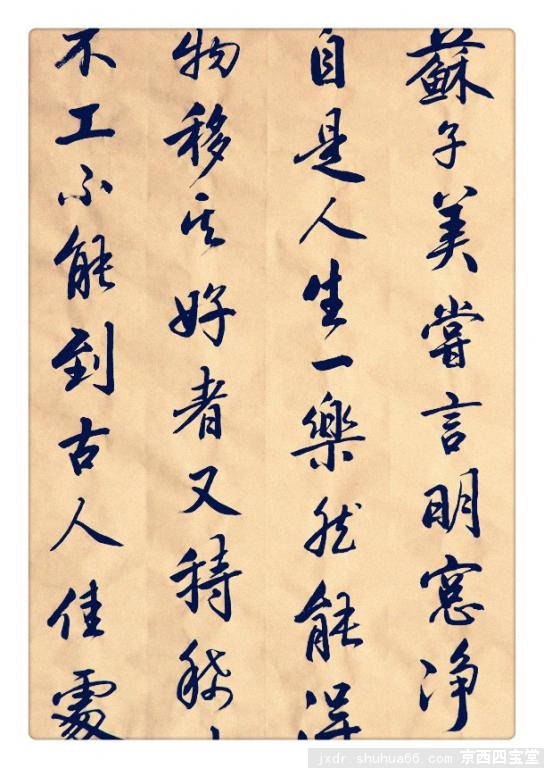 蘇子美嘗言明窓净
自是人生一樂然能得
物移其好者又特稀
不工不能到古人佳處
jxdr.shuhua66.com 京西四宝堂